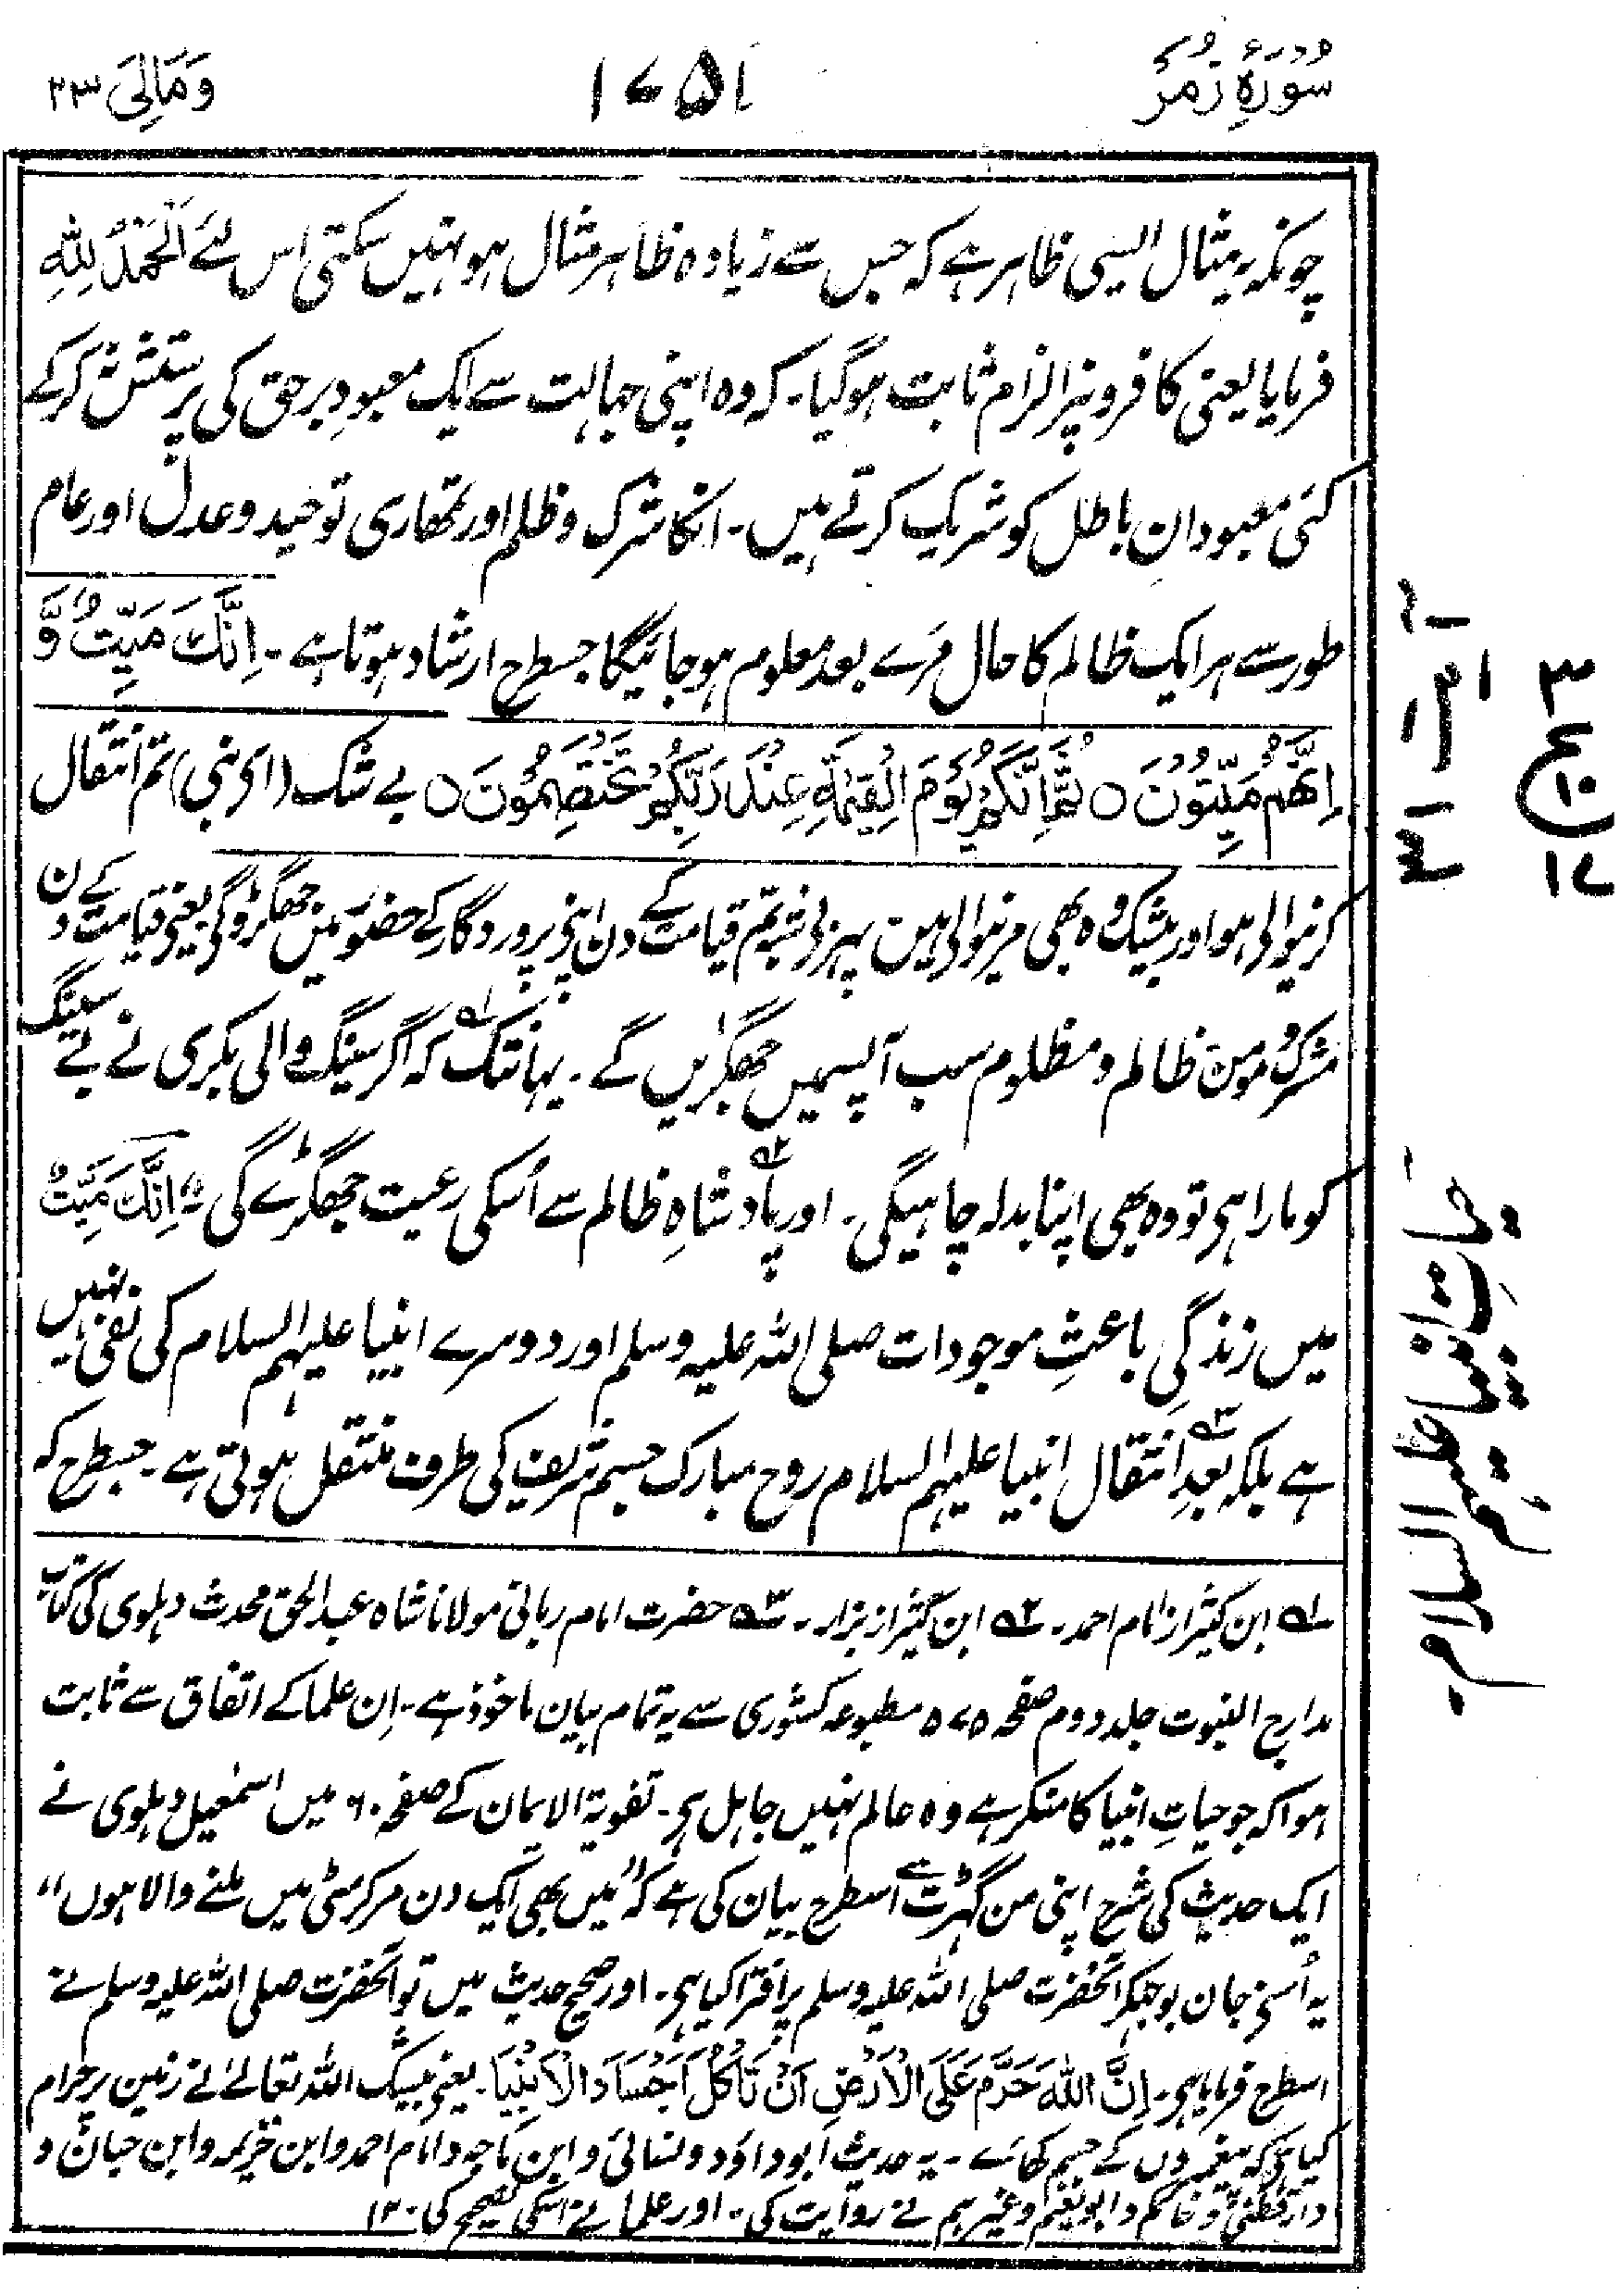 سُوْرَۂ زُمَرْ
۱۷۵۱
وَمَالِیَ ۲۳
چونکہ یہ مثال ایسی ظاہر ہے کہ جس سے زیادہ ظاہر مثال ہو نہیں سکتی اس لئے اَلْحَمْدُ لِلّٰهِ
فرمایا یعنی کافرونپر الزام ثابت ہوگیا۔ کہ وہ اپنی جہالت سے ایک معبودِ برحق کی پرستش نہ کرکے
کئی معبودانِ باطل کو شریک کرتے ہیں۔ انکا شرک و ظلم اور تمھاری توحید و عدل اور عام
طور سے ہر ایک ظالم کا حال مرے بعد معلوم ہو جائیگا جسطرح ارشاد ہوتا ہے۔ اِنَّكَ مَيِّتٌ وَّ
اِنَّهُمْ مَّيِّتُوْنَ ○ ثُمَّ اِنَّكُمْ يَوْمَ الْقِيٰمَةِ عِنْدَ رَبِّكُمْ تَخْتَصِمُوْنَ ○ بے شک (ای نبی) تم انتقال
کرنیوالی ہو اور بیشک وہ بھی مرنیوالی ہیں پہر بی شبہ تم قیامت کے دن اپنی پروردگار کے حضور میں جھگڑوگی یعنی قیامت کے دن
مشرک و مومن ظالم و مظلوم سب آپسمیں جھگڑیں گے۔ یہانتک ۱؎ کہ اگر سینگ والی بکری نے بے سینگ
کو مارا ہی تو وہ بھی اپنا بدلہ چاہیگی۔ اور پادشاہِ ۲؎ ظالم سے اُسکی رعیت جھگڑے گی ؞ اِنَّكَ مَيِّتٌ
میں زندگیِ باعثِ موجودات صلی اللہ علیہ وسلم اور دوسرے انبیا علیہم السلام کی نفی نہیں
ہے بلکہ بعدِ ۳؎ انتقال انبیا علیہم السلام روح مبارک جسم شریف کی طرف منتقل ہوتی ہے۔ جسطرح کہ
۱؎ ابن کثیر از امام احمد۔ ۲؎ ابن کثیر از بزار۔ ۳؎ حضرت امام ربانی مولانا شاہ عبدالحق محدث دہلوی کی کتاب
مدارج النبوت جلد دوم صفحہ ۵۷۵ مطبوعہ کشوری سے یہ تمام بیان ماخوذ ہے۔ اِن علما کے اتفاق سے ثابت
ہوا کہ جو حیاتِ انبیا کا منکر ہے وہ عالم نہیں جاہل ہی۔ تقویۃ الایمان کے صفحہ ۶۰ میں اسمٰعیل دہلوی نے
ایک حدیث کی شرح اپنی من گہڑت سے اسطرح بیان کی ہے کہ "میں بھی ایک دن مرکر مٹی میں ملنے والا ہوں"
یہ اُسنی جان بوجھکر آنحضرت صلی اللہ علیہ وسلم پر افترا کیا ہی۔ اور صحیح حدیث میں تو آنحضرت صلی اللہ علیہ وسلم نے
اسطرح فرمایا ہی۔ اِنَّ اللّٰهَ حَرَّمَ عَلَى الْاَرْضِ اَنْ تَأْكُلَ اَجْسَادَ الْاَنْبِيَا۔ یعنی بیشک اللہ تعالےٰ نے زمین پر حرام
کیا ہی کہ پیغمبروں کے جسم کھائے۔ یہ حدیث ابو داؤد و نسائی و ابن ماجہ و امام احمد و ابن خزیمہ و ابن حبان و
دارقطنی و حاکم و ابو نعیم وغیرہم نے روایت کی۔ اور علما نے اسکی تصحیح کی۔ ۱۲
۳
ع
۱۰
۱۷
حیاتِ انبیا علیہم السلام۔